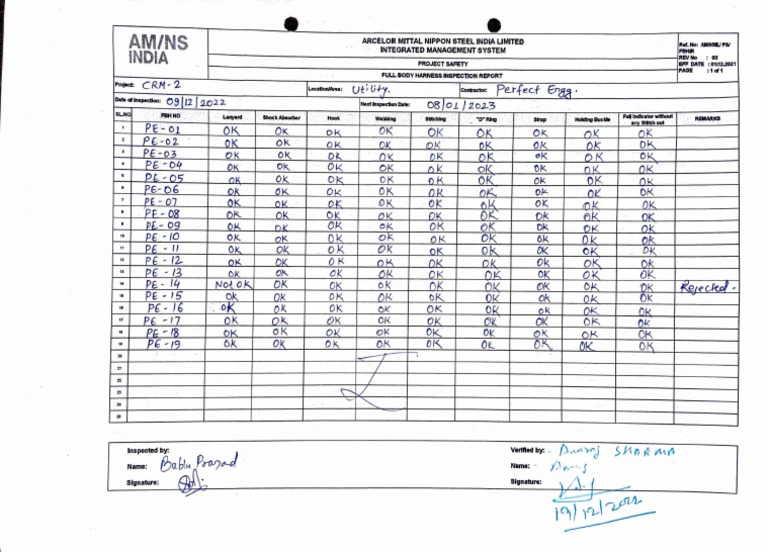 AM/NS
INDIA
ARCELOR MITTAL NIPPON STEEL INDIA LIMITED
INTEGRATED MANAGEMENT SYSTEM
PROJECT SAFETY
FULL BODY HARNESS INSPECTION REPORT
Ref. No: AM/NSIL/ PS/
FBHIR
REV No : 03
EFF DATE : 01.12.2021
PAGE : 1 of 1
Project: CRM-2 Location/Area: Utility. Contractor: Perfect Engg.
Date of Inspection: 09/12/2022 Next Inspection Date: 08/01/2023
SL.NO FBH NO Lanyard Shock Absorber Hook Webbing Stitching "D" Ring Strap Holding Buckle Fall Indicator without any Stitch out REMARKS
1 PE-01 OK OK OK OK OK OK OK OK OK
2 PE-02 OK OK OK OK OK OK OK OK OK
3 PE-03 OK OK OK OK OK OK OK OK OK
4 PE-04 OK OK OK OK OK OK OK OK OK
5 PE-05 OK OK OK OK OK OK OK OK OK
6 PE-06 OK OK OK OK OK OK OK OK OK
7 PE-07 OK OK OK OK OK OK OK OK OK
8 PE-08 OK OK OK OK OK OK OK OK OK
9 PE-09 OK OK OK OK OK OK OK OK OK
10 PE-10 OK OK OK OK OK OK OK OK OK
11 PE-11 OK OK OK OK OK OK OK OK OK
12 PE-12 OK OK OK OK OK OK OK OK OK
13 PE-13 OK OK OK OK OK OK OK OK OK
14 PE-14 Not ok OK OK OK OK OK OK OK OK Rejected.
15 PE-15 OK OK OK OK OK OK OK OK OK
16 PE-16 OK OK OK OK OK OK OK OK OK
17 PE-17 OK OK OK OK OK OK OK OK OK
18 PE-18 OK OK OK OK OK OK OK OK OK
19 PE-19 OK OK OK OK OK OK OK OK OK
20
21
22
23
24
25
Inspected by: Verified by: SHARMA
Name: Bablu Prasad Name:
Signature: Signature:
19/12/2022